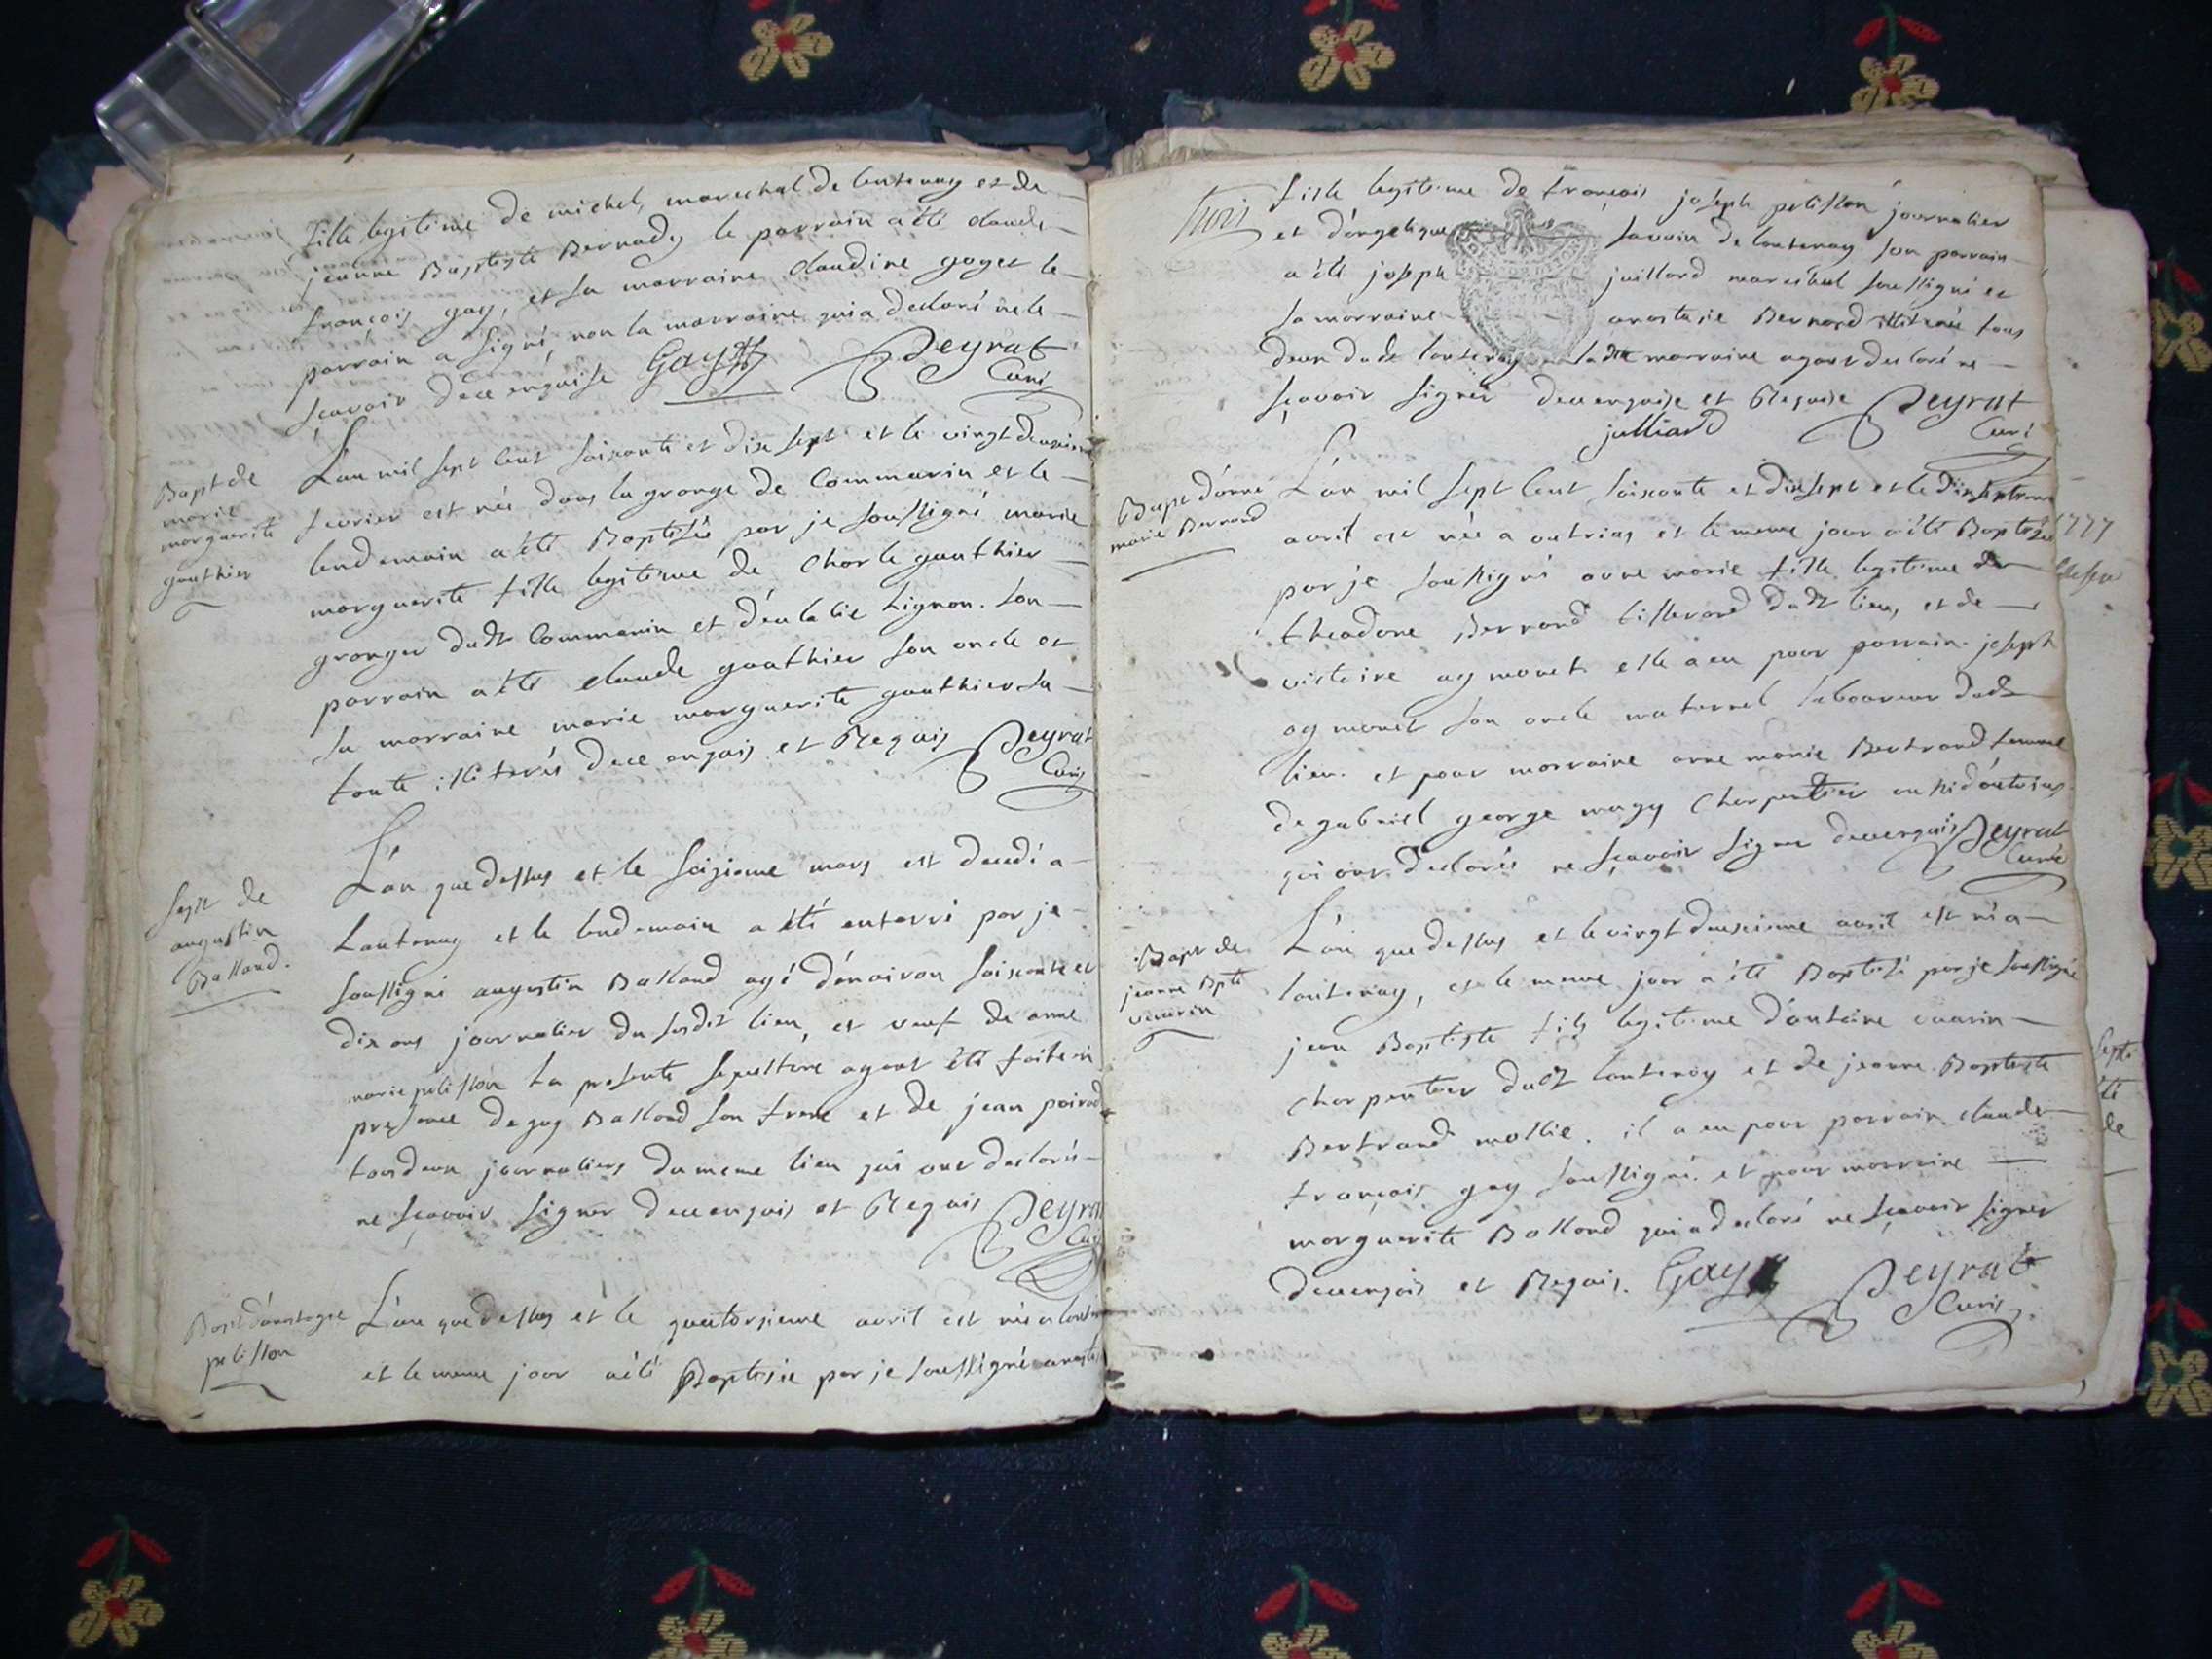 fille legitime de michel, marechal de lentenay et de
jeanne Baptiste Bernady le parrain a été claude
françois gay, et sa marraine claudine goyet le
parrain a signé non la marraine qui a declaré ne le
sçavoir de ce enquise Gay Peyrat
Curé
Bapt de
marie
marguerite
gauthier
L'an mil sept cent soixante et dix sept et le vingt deuxieme
fevrier est née dans la grange de Commarin et le
lendemain a été Baptisée par je soussigné marie
marguerite fille legitime de charle gauthier
granger dudt Commarin et d'eulalie Lignon. son
parrain a été claude gauthier son oncle et
sa marraine marie marguerite gauthier sa
tante illiterés de ce enquis et Requis Peyrat
Curé
Sepre de
augustin
Balland.
L'an que dessus et le seizieme mars est decedé a
Lantenay et le lendemain a été enterré par je
soussigné augustin Balland agé d'enairon soixante et
dix ans journalier du susdit lieu, et veuf de anne
marie pelisson la presente sepulture ayant été faite en
presence de guy Balland son frere et de jean poirod
tousdeux journaliers du meme lieu qui ont declarés
ne sçavoir signer de ce enquis et Requis Peyrat
Curé
Bapt d'anstasie
pelisson
L'an que dessus et le quatorsieme avril est née a
et le meme jour a été Baptisie par je soussigné
fille legitime de françois joseph pelisson journalier
et d'angelique savoin de lantenay son parrain
a été joseph juillard marechal soussigné et
sa marraine anastasie Bernard illiterée tous
deux dudt lantenay ladte marraine ayant declaré ne
sçavoir signer de ce enquise et Requise Peyrat
julliard Curé
Bapt d'anne
marie Bernard
L'an mil sept cent soixante et dixsept et le dixseptieme
avril est née a outriaz et le meme jour a été Baptisée
par je soussigné anne marie fille legitime de
theadore Bernard tisserand dudt lieu, et de
victoire aymonet elle a eu pour parrain joseph
aymonet son oncle maternel laboureur dudt
lieu. et pour marraine anne marie Bertrand femme
de gabriel george charpentier aussi d'outriaz
qui ont declarés ne sçavoir signer de ce enquis Peyrat
Curé
1777
Bapt de
jeanne Bpte
L'an que dessus et le vingt deuxieme avril est né a
lantenay, et le meme jour a été Baptisé par je soussigné
jean Baptiste fils legitime d'antoine
charpentier dudt lantenay et de jeanne Baptiste
Bertrand mollie. il a eu pour parrain claude
françois gay soussigné. et pour marraine
marguerite Balland qui a declaré ne sçavoir signer
de ce enquis et Requis. Gay Peyrat
Curé